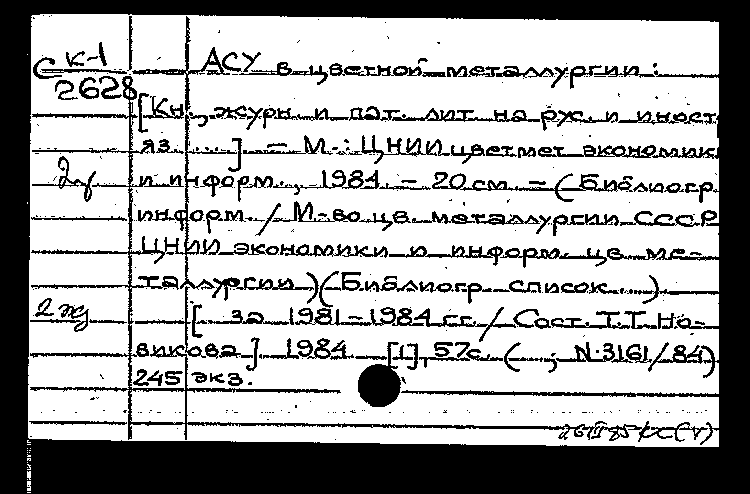 С К-1
2628
АСУ в цветной металлургии :
[Кн., журн. и пат. лит на рус. и иност
яз. ...] – М.: ЦНИИцветмет экономики
2 экз
и информ., 1984. – 20 см. – (Библиогр.
информ. / М-во цв. металлургии СССР
ЦНИИ экономики и информ. цв ме-
таллургии)(Библиогр. список...)
[ за 1981–1984 гг. / Сост. Т.Т. Но-
викова] 1984 [1], 57с. ( ; N-3161/84)
245 экз.